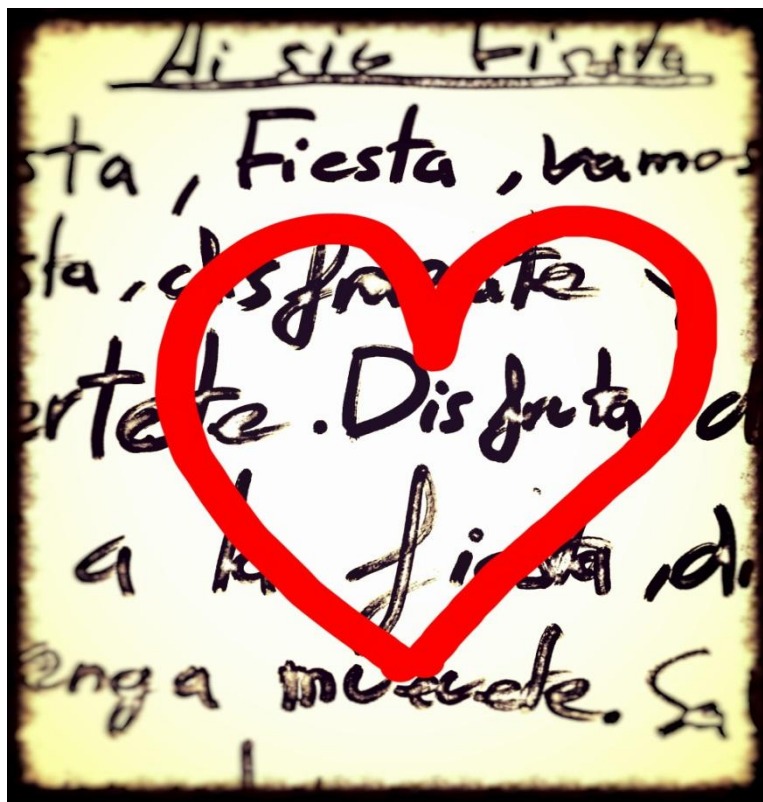 Fiesta
sta, Fiesta, vamos
sta, disfrutate y
ertete. Disfruta d
a la fiesta, di
enga muevete. Sa